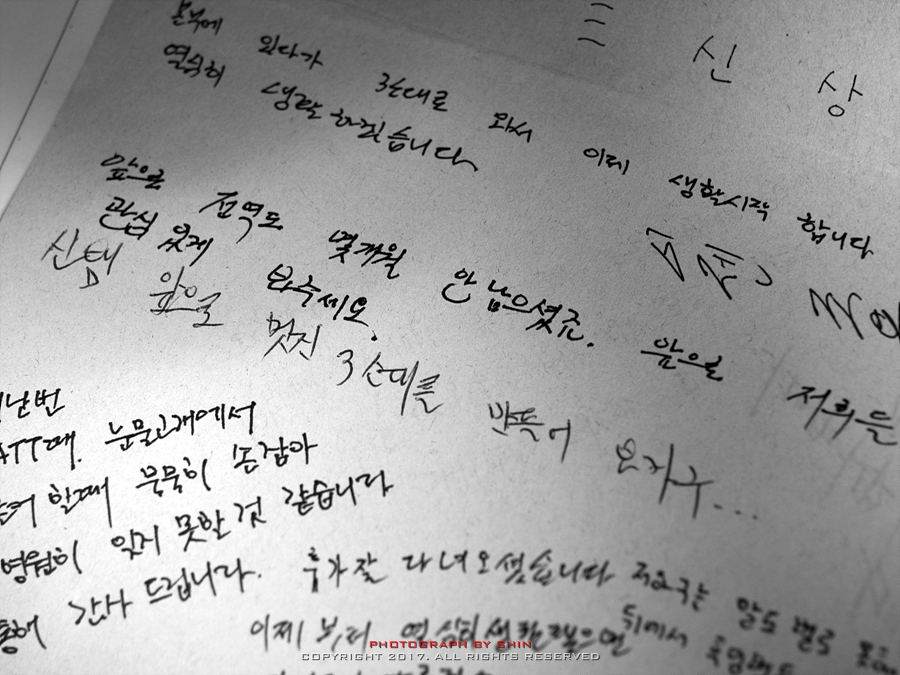 신 상
본부에 있다가 3소대로 와서 이제 생활시작 합니다
열심히 생활 하겠습니다
앞으로 전역도 몇개월 안 남으셨죠. 앞으로 저희들
관심 있게 봐주세요.
앞으로 멋진 3소대를 만들어 보자구...
난번
ATT때. 눈물고개에서
할때 묵묵히 손잡아
영원히 잊지 못할 것 같습니다
감사 드립니다.
휴가 잘 다녀오셨습니다 말도 별로
이제부터 열심히 뒤에서
PHOTOGRAPH BY SHIN
COPYRIGHT 2017. ALL RIGHTS RESERVED